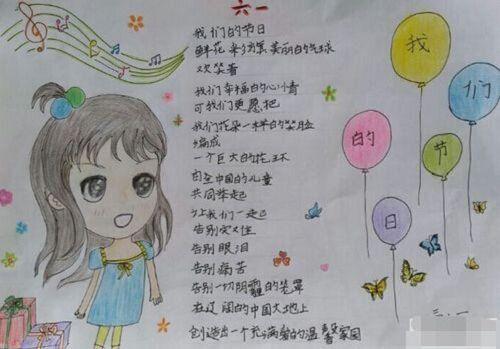 六一
我们的节日
鲜花 美丽的气球
欢笑着
我们幸福的心儿
可我们更愿把
我们花朵一样的笑脸
编成
一个巨大的花环
由全中国的儿童
共同举起
让我们一起
告别
告别眼泪
告别痛苦
告别一切阴霾的笼罩
在辽阔的中国大地上
创造出一个充满爱的温馨家园
我
们
的
节
日